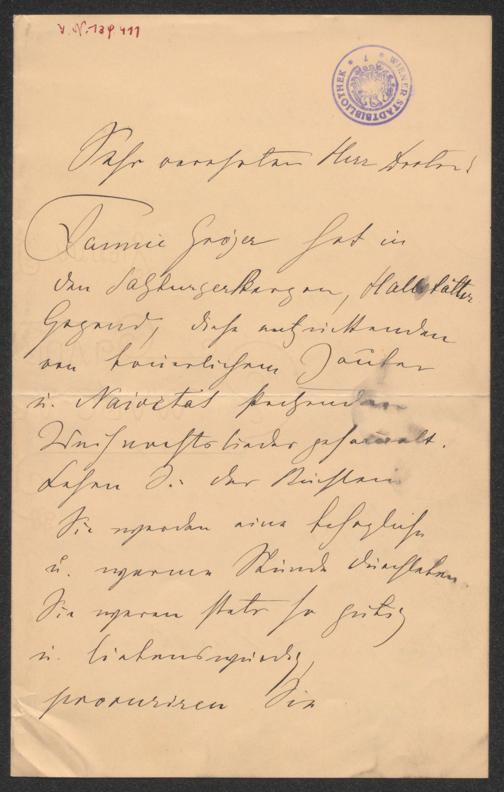 J. N. 139411
WIENER STADTBIBLIOTHEK
Sehr verehrter Herr Doctor!
Fannie Gröger hat in
den Salzburgerbergen, Hallstätter
Gegend, diese entzückenden
von bäuerlichem Zauber
u. Naivetät strotzenden
Weihnachtslieder gesammelt.
Lesen S. das Büchlein
Sie werden eine behagliche
u. warme Stunde durchleben.
Sie waren stets so gütig
u. liebenswürdig,
Sie